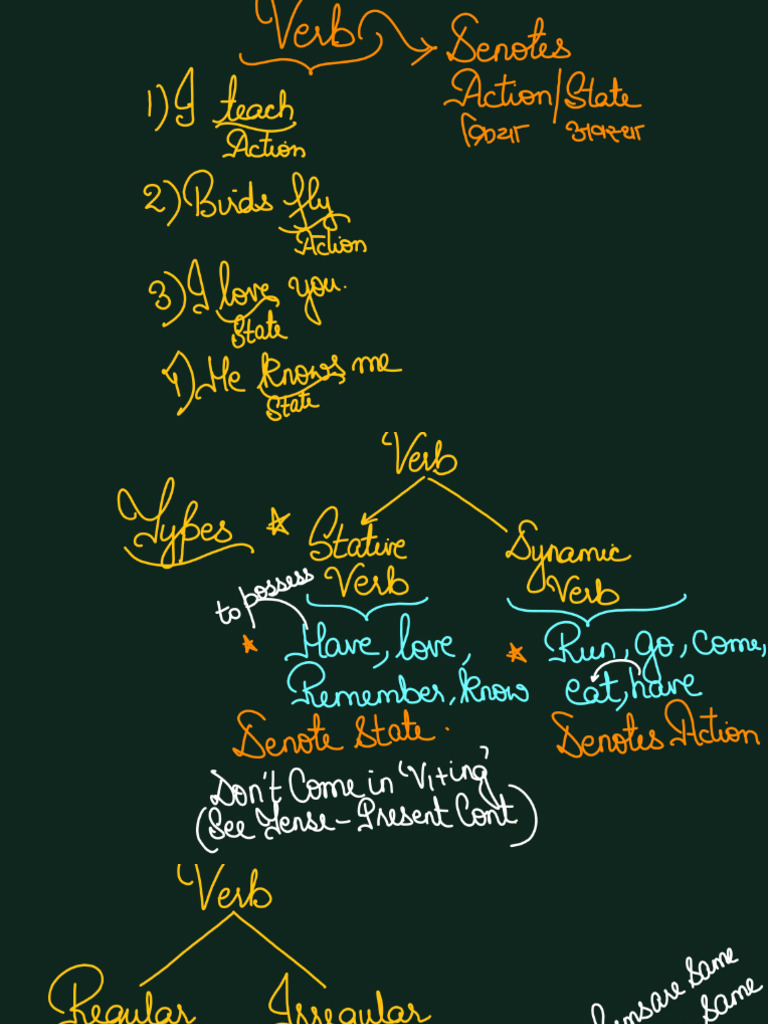 Verb → Denotes
Action/State
क्रिया अवस्था
1) I teach
Action
2) Birds fly
Action
3) I love you.
State
4) He knows me
State
Verb
Types
Stative
Verb
Dynamic
Verb
to possess
Have, love,
Remember, know
Denote State.
Run, go, come,
eat, have
Denotes Action
Don't Come in 'V1+ing'
(See Tense - Present Cont)
Verb
Regular Irregular
are Same
Same